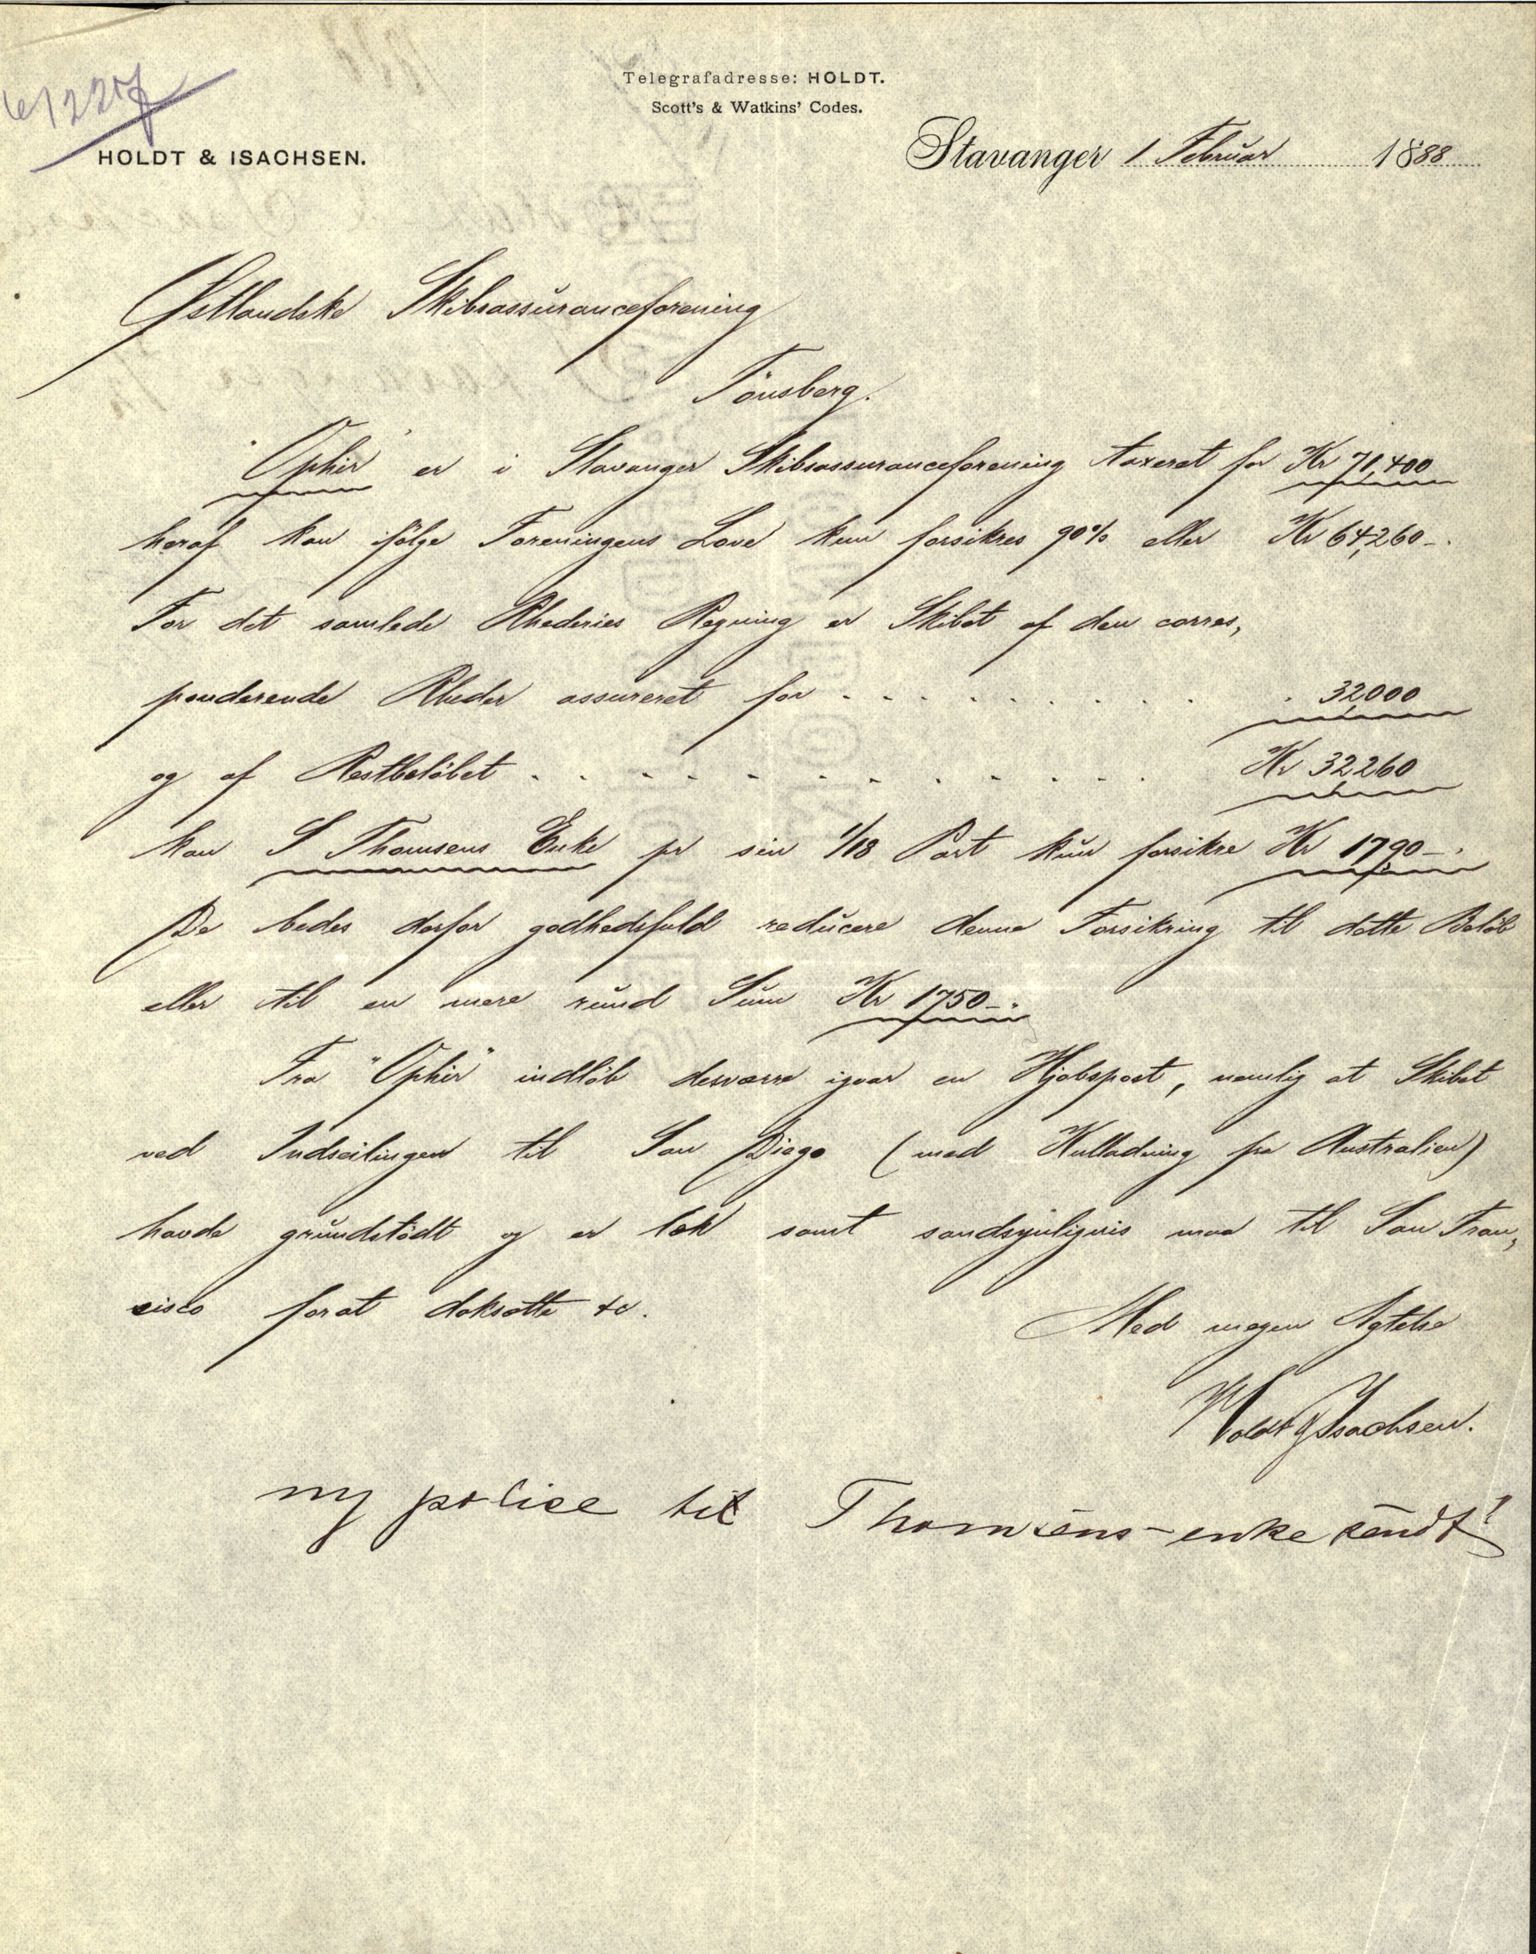 Telegrafadresse: HOLDT.
Scott's & Watkins' Codes.
HOLDT & ISACHSEN.
Stavanger 1 Februar 1888
Østlandske Skibsassuranceforening
Tönsberg.
"Ophir" er i Stavanger Skibsassuranceforening taxeret for Kr 71,400
heraf kan ifølge Foreningens Love kun forsikres 90% eller Kr 64,260-.
For det samlede Rhederies Regning er Skibet af den corres,
ponderende Rheder assureret for . . . . . . . . . . . 32,000
og af Restbeløbet . . . . . . . . . . . . . Kr 32,260
kan S Thomsens Enke pr sin 1/18 Part kun forsikre Kr 1790-.
De bedes derfor godhedsfuld reducere denne Forsikring til dette Beløb
eller til en mere rund Sum Kr 1750-.
Fra "Ophir" indløb desværre igaar en Hjobspost, nemlig at Skibet
ved Indseilingen til San Diego (med Kulladning fra Australien)
havde grundstødt og er læk samt sandsynligvis maa til San Fran,
cisco forat doksætte &c.
Med megen Agtelse
Holdt & Isachsen.
ny police til Thomsens-enke sendt!